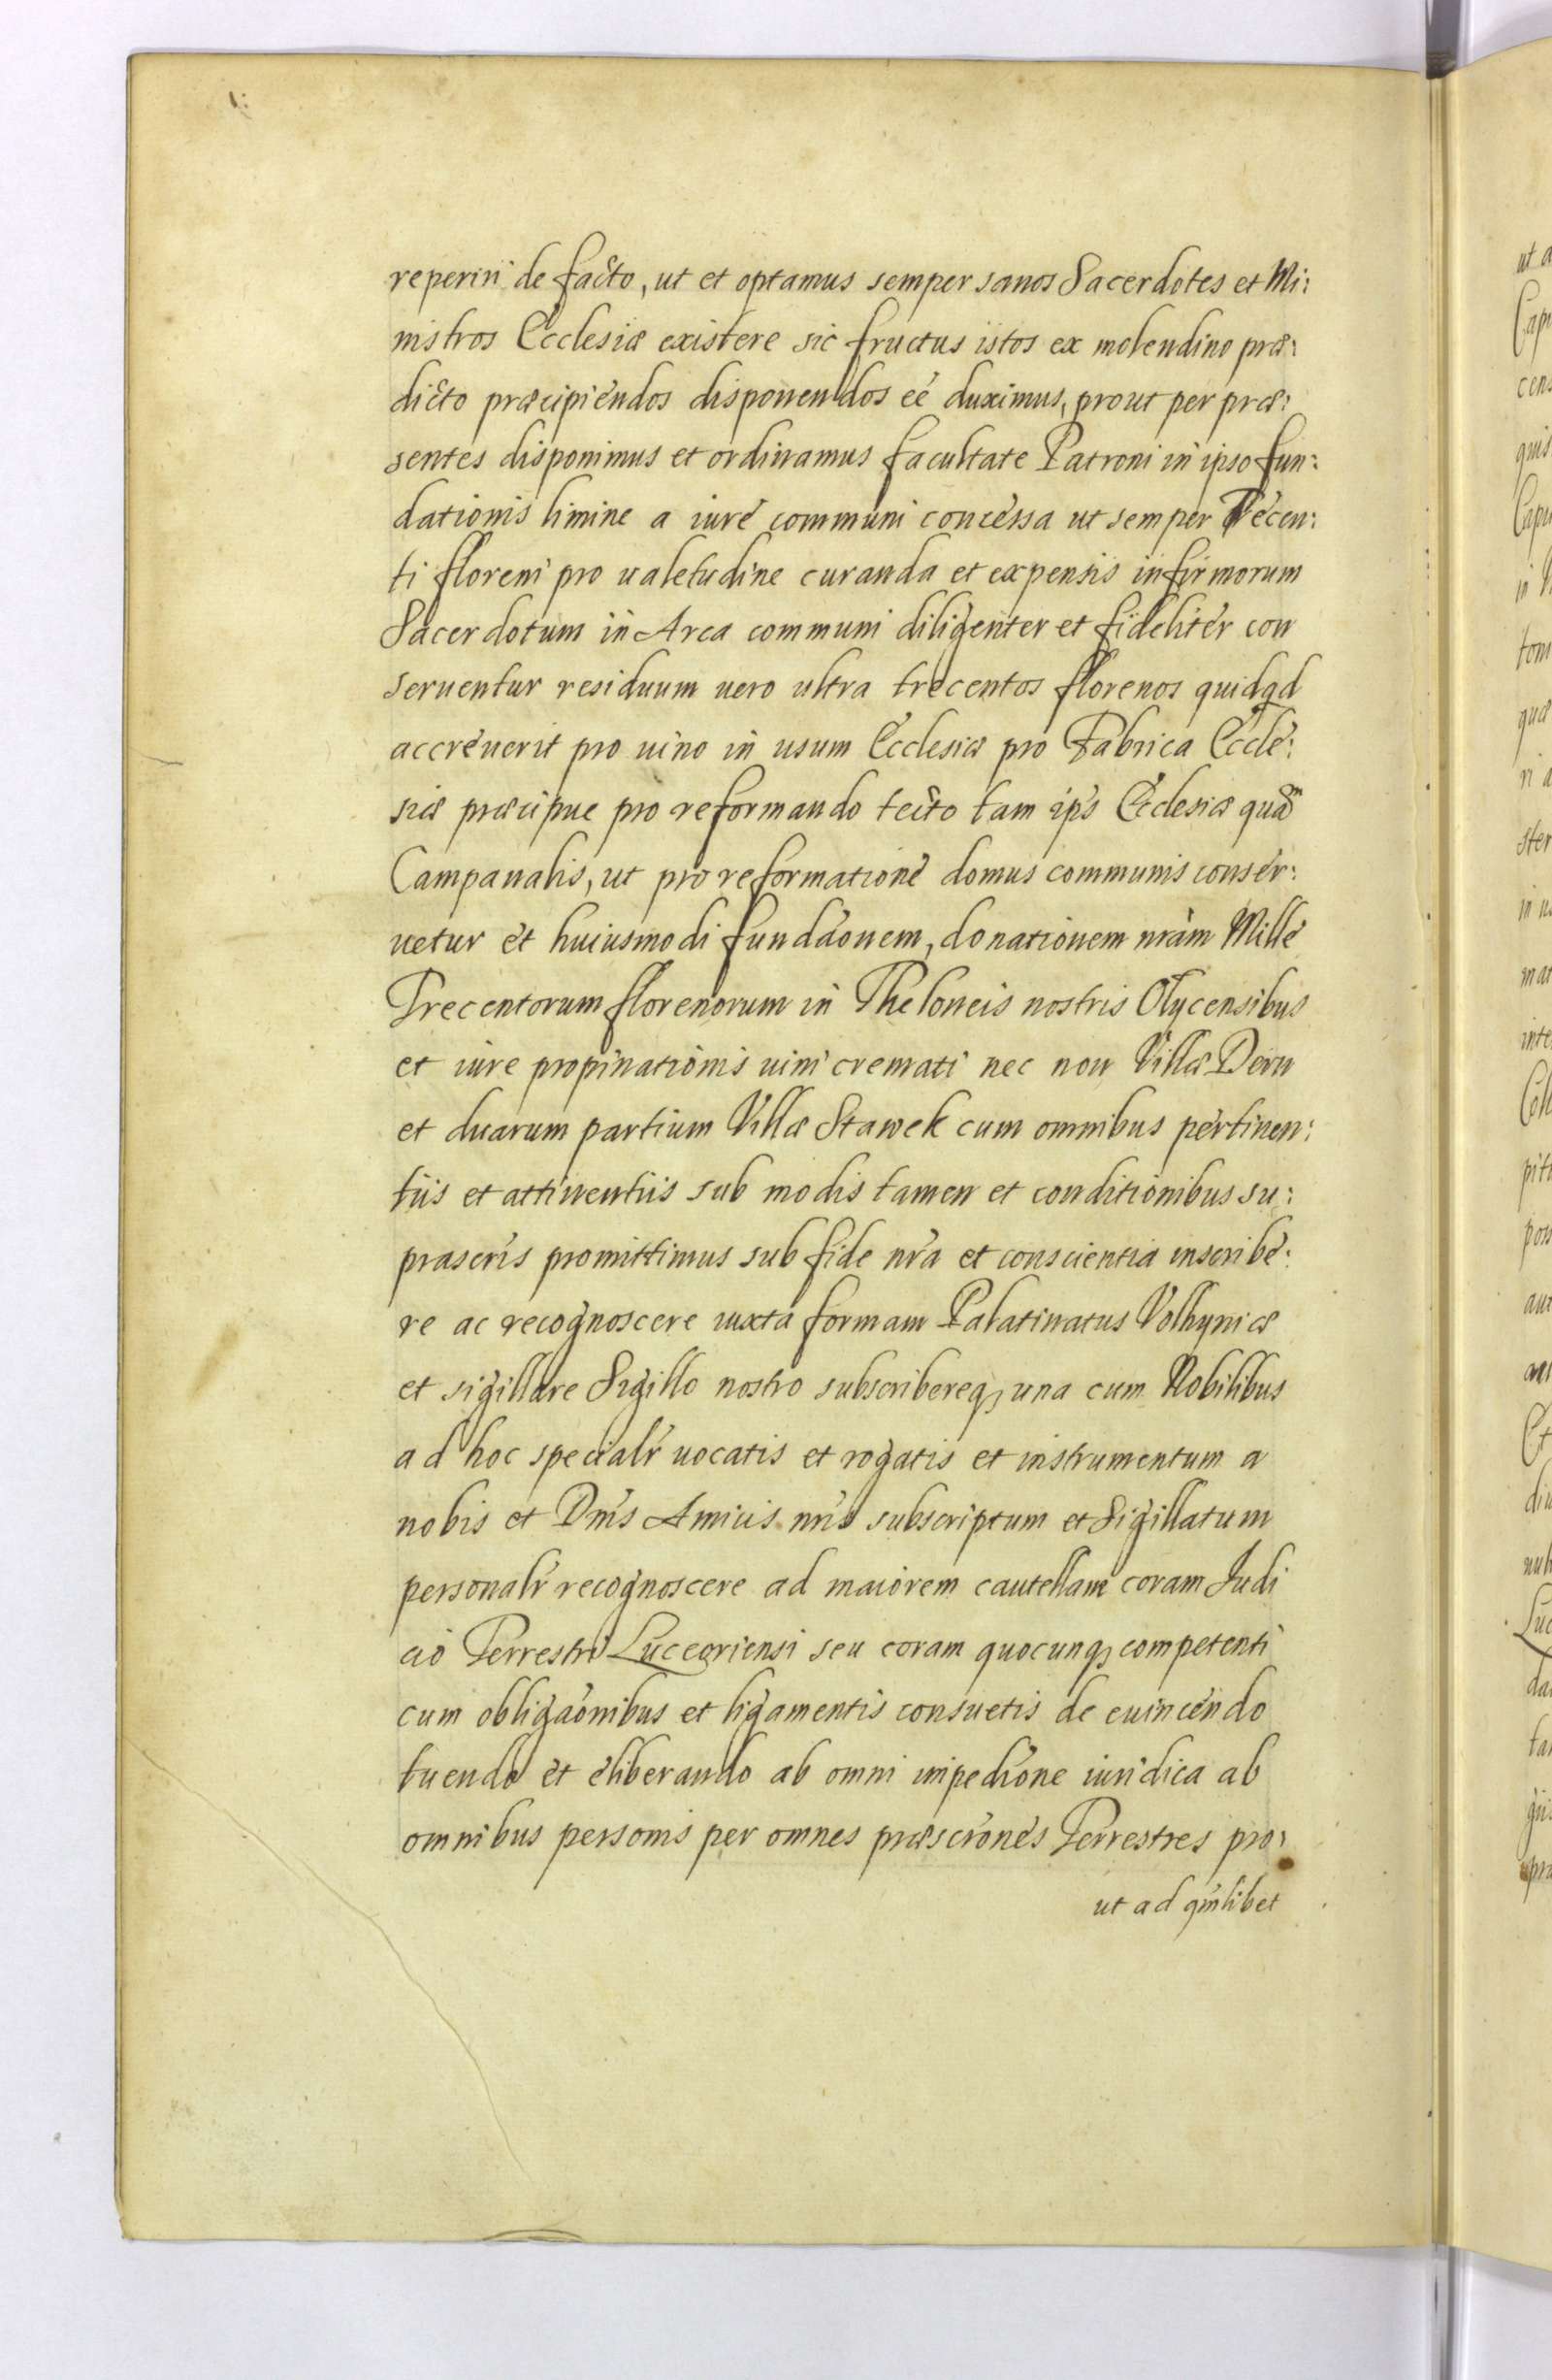 reperiri de facto, ut et optamus semper sanos Sacerdotes et Mi:
nistros Ecclesiæ existere sic fructus istos ex molendino præ:
dicto præcipiendos disponendos eé duximus, prout per præ:
sentes disponimus et ordinamus facultate Patroni in ipso fun:
dationis limine a iure communi concessa ut semper Trecen:
ti floreni pro ualetudine curanda et expensis infirmorum
Sacerdotum in Arca communi diligenter et fideliter con
seruentur residuum uero ultra trecentos florenos quidqd
accreuerit pro uino in usum Ecclesiæ pro Fabrica Eccle:
siæ præcipue pro reformando tecto tam ip̃s Ecclesiæ quã
Campanalis, ut pro reformatione domus communis conser:
uetur et huiusmodi fundãonem, donationem nrãm Mille
Trecentorum florenorum in Theloneis nostris Olycensibus
et iure propinationis uini cremati nec non Villæ Dern
et duarum partium Villæ Stawek cum omnibus pertinen:
tiis et attinentiis sub modis tamen et conditionibus su:
prascris̃ promittimus sub fide nrã et conscientia inscribe:
re ac recognoscere iuxta formam Palatinatus Volhyniæ
et sigillare Sigillo nostro subscribereq; una cum Nobilibus
ad hoc specialr̃ uocatis et rogatis et instrumentum a
nobis et Dnĩs Amicis nrĩs subscriptum et Sigillatum
personalr̃ recognoscere ad maiorem cautellam coram Iudi
cio Terrestri Luceoriensi seu coram quocunq; competenti
cum obligãonibus et ligamentis consuetis de euincendo
tuendo et eliberando ab omni impedĩone iuridica ab
omnibus personis per omnes præscrĩones Terrestres pro:
ut ad qmlibet